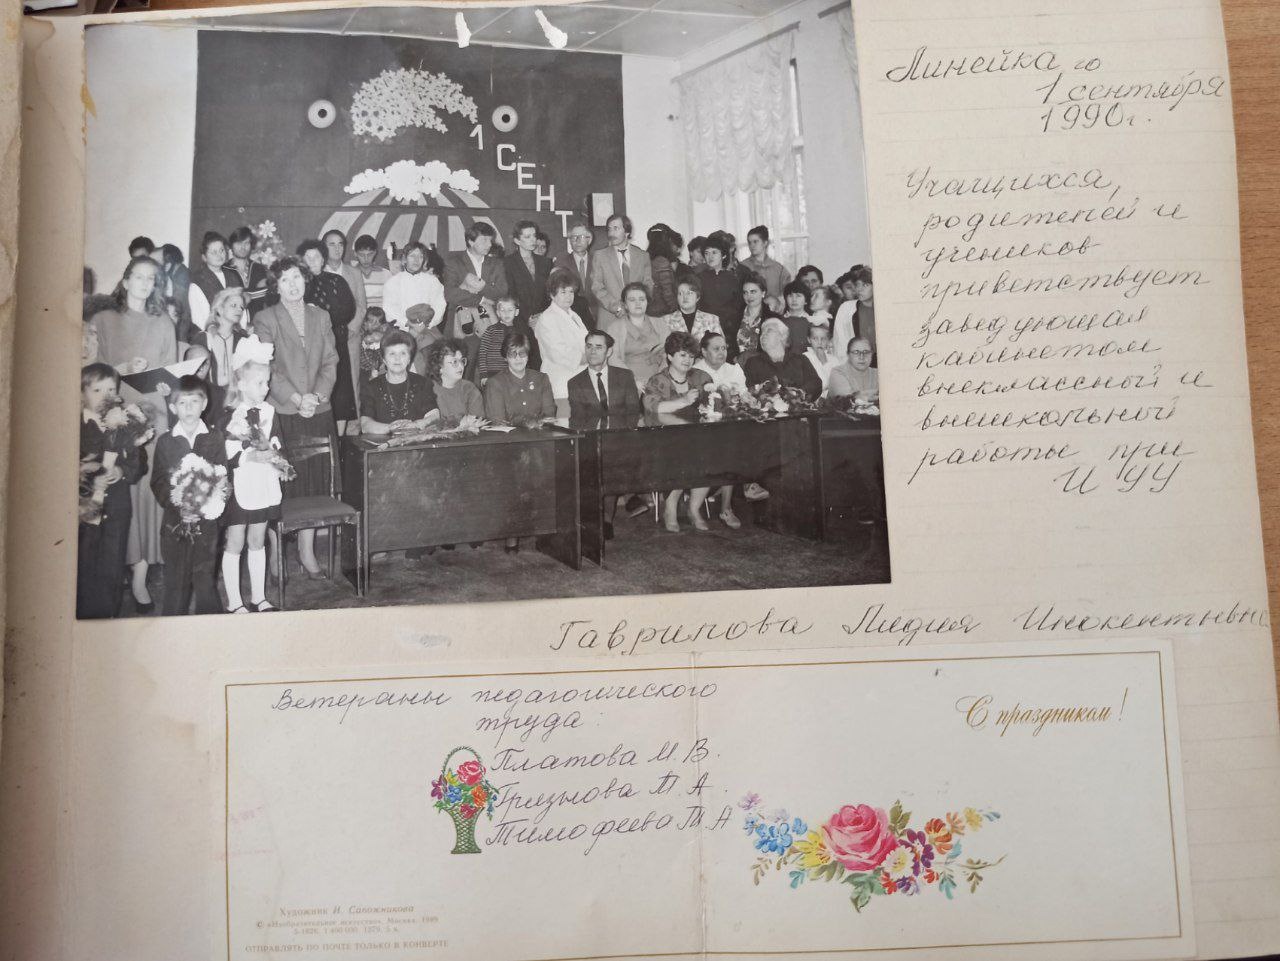 1 СЕНТ
Линейка
1 го сентября
1990г.
Учащихся,
родителей и
учеников
приветствует
заведующая
кабинетом
внеклассной и
внешкольной
работы при
ИУУ
Гаврилова Лидия Инокентьевна
Ветераны педагогического
труда:
Платова М. В.
Грязнова Т. А.
Тимофеева Т. А
С праздником!
Художник И. Сапожникова
© «Изобразительное искусство». Москва. 1989
5-1828. 1 400 000. 1279. 5 к.
ОТПРАВЛЯТЬ ПО ПОЧТЕ ТОЛЬКО В КОНВЕРТЕ